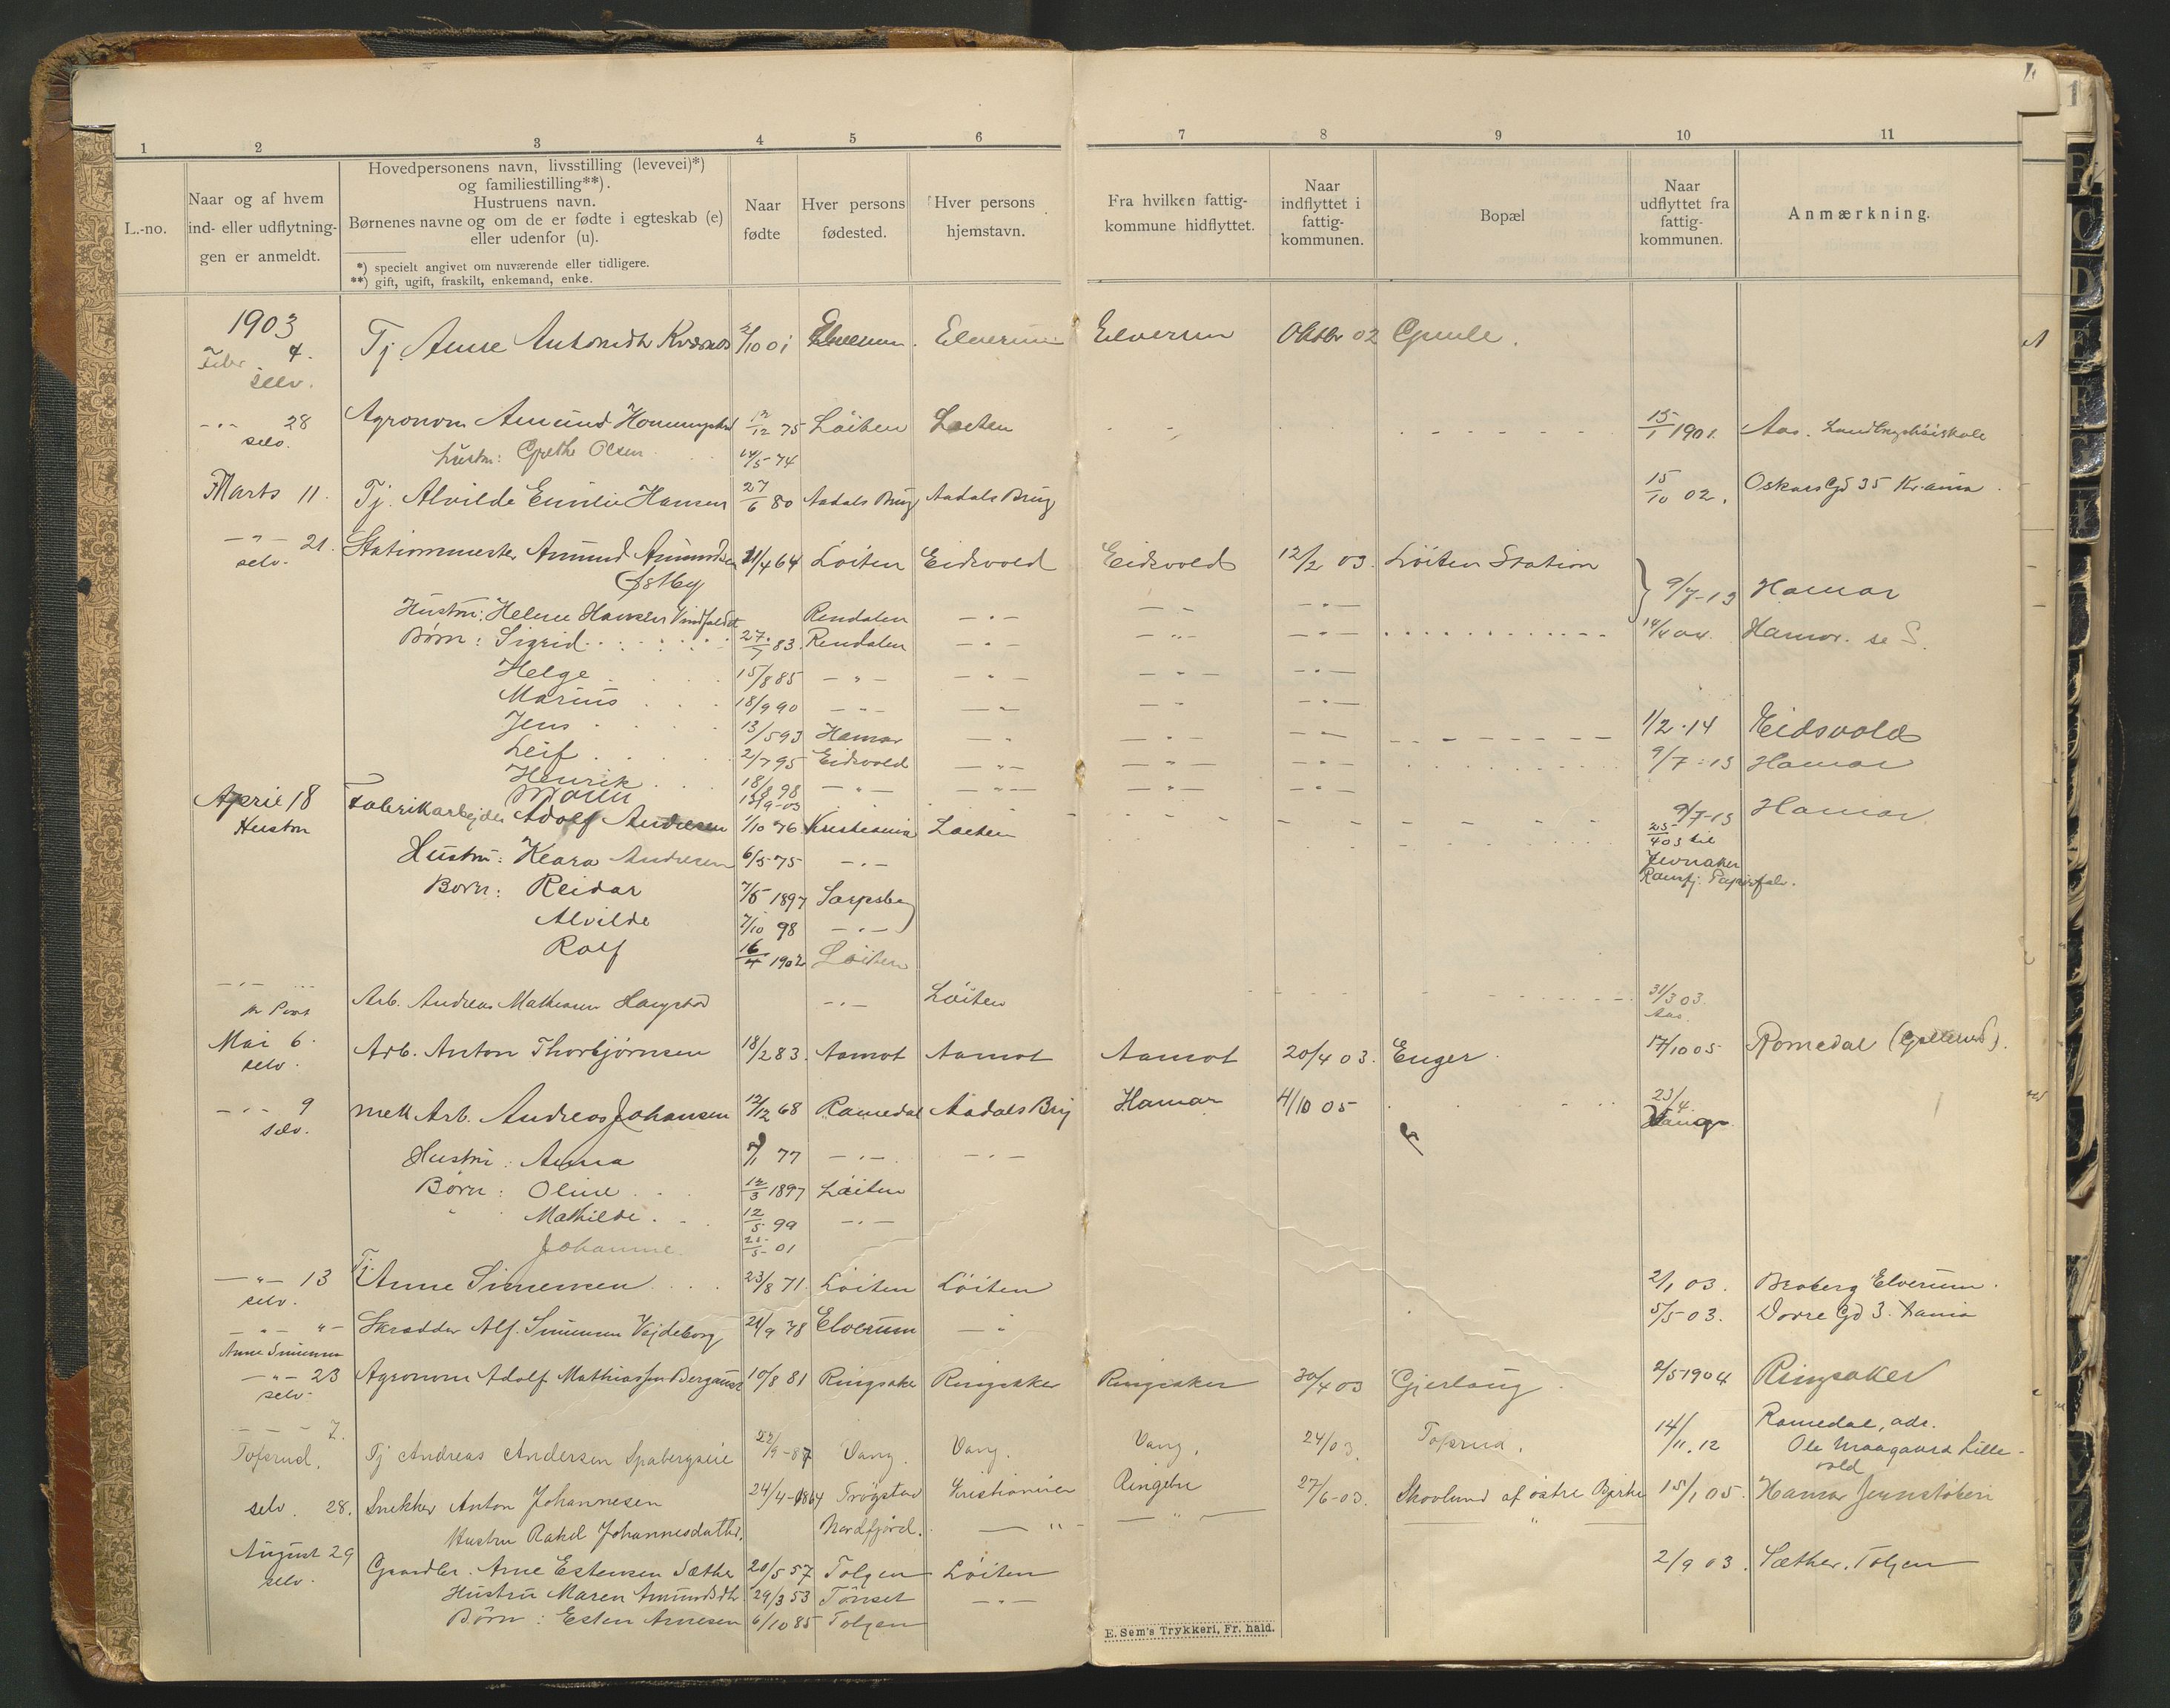 1 2 3 4 5 6 7 8 9 10 11
L.-no.
Naar og af hvem
ind- eller udflytnin-
gen er anmeldt.
Hovedpersonens navn, livsstilling (levevei)*)
og familiestilling**).
Hustruens navn.
Børnenes navne og om de er fødte i egteskab (e)
eller udenfor (u).
*) specielt angivet om nuværende eller tidligere.
**) gift, ugift, fraskilt, enkemand, enke.
Naar
fødte
Hver persons
fødested.
Hver persons
hjemstavn.
Fra hvilken fattig-
kommune hidflyttet.
Naar
indflyttet i
fattig-
kommunen.
Bopæl
Naar
udflyttet fra
fattig-
kommunen.
Anmærkning.
1903
Febr 4. Tj. Anne Elverum. Elverum Elverum Oktbr 02
selv.
-"- 28 Agronom Amund 12/12 75 Löiten Loiten 15/1 1901. Aas. Landbrugshöiskole
selv. Hustru: Grethe Olsen 14/5 74
Marts 11. Tj. Alvilde Emilie Hansen 27/6 80 Aadals Brug Aadals Brug 15/10 02. Oskars Gd 35 Kr.ania
-"- 21. Stationmester Amund Amundsen 21/4 64 Löiten Eidsvold Eidsvold 12/2 03. Löiten Station
selv. Østby 9/7-13 Hamar
Hustru: Helene Hansen Rendalen -"- -"- -"-
Børn: Sigrid 27/7 83. Rendalen -"- -"- -"- 14/4 04. Hamar. se S.
Helge 15/8 85 -"- -"- -"- -"-
Marius 18/9 90 -"- -"- -"- -"-
Jens 13/5 93 Hamar -"- -"- -"- 1/2-14 Eidsvold
Leif 2/7 95 Eidsvold -"- -"- -"- 9/7-13 Hamar
Henrik 18/8 98 -"- -"- -"- -"-
9/7-13 Hamar
April 18 Fabrikarbejder Adolf Andresen 1/10 76. Kristiania Loiten 25/4 03 til
Hustru Jevnaker
Hustru: Klara Andresen 6/5 75 -"-
Born: Reidar 7/5 1897 Sarpsborg
Alvilde 7/10 98 -"-
Rolf 16/4 1902 Loiten
-"- Arb. Andreas Mathiasen -"- Löiten 31/3 03.
Aas.
Mai 6. Arb. Anton Thorbjørnsen 18/2 83. Aamot Aamot Aamot 20/4 03. Enger 17/10 05 Romedal
selv.
-"- 9 Arb. Andreas Johansen 12/12 68 Romedal Aadals Brg Hamar 4/10 05 23/4.
selv.
Hustru: Anna 77 -"- -"-
Børn: Oline 12/3 1897 Löiten
Mathilde 12/5 99 -"-
Johanne 5 01
-"- 13 Tj. Anne Simensen 23/8 71. Löiten Löiten 2/1 03. Broberg Elverum.
selv.
-"- "- Skrædder Alf. Simensen 78 Elverum -"- 5/5 03. Dovre Gd 3. Kania
Anne Simensen
-"- 23 Agronom Adolf Mathiassen 10/8 81 Ringsaker Ringsaker Ringsaker 30/4 03 Gjerlaug 2/5 1904 Ringsaker
selv.
7. Tj Andreas Andersen 22/9-87 Vang. Vang. Vang. 24/03 14/11.12 Romedal, adr.
Ole
selv 28. Snekker Anton Johannesen 24/4-1864 Trögstad Kristiania Ringebu 27/6-03. Skovlund af östre 15/1 05. Hamar Jernstöberi
Hustru Rakel Johannesdatter. Nordfjord. -"- -"- "
August 29 Arne Estensen Sæther 20/5 57 Tolgen Löiten 2/9 03. Sæther. Tolgen
selv. Hustru Maren Amundsdtr 29/3 53 Tönset -"-
Börn: Esten Arnesen 6/10 85 Tolgen
E. Sem's Trykkeri, Fr. hald.